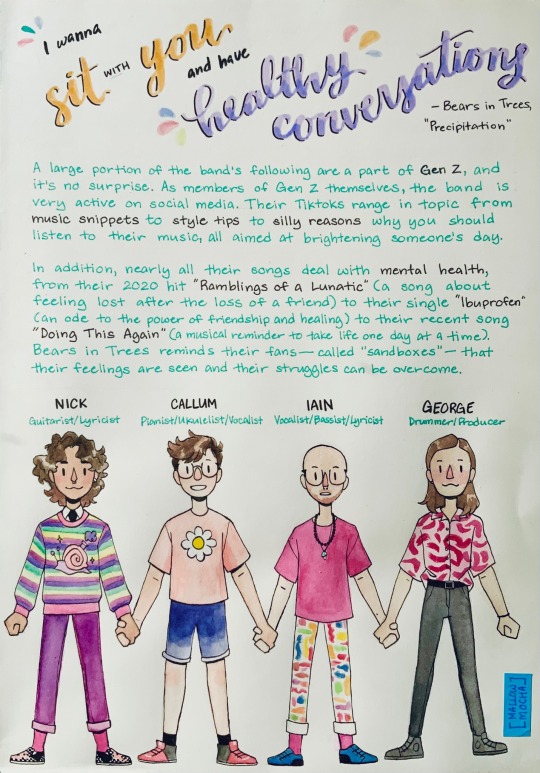 I wanna
sit WITH you
and have
healthy
conversations
- Bears in Trees,
"Precipitation"
A large portion of the band's following are a part of Gen Z, and
it's no surprise. As members of Gen Z themselves, the band is
very active on social media. Their Tiktoks range in topic from
music snippets to style tips to silly reasons why you should
listen to their music, all aimed at brightening someone's day.
In addition, nearly all their songs deal with mental health,
from their 2020 hit "Ramblings of a Lunatic" (a song about
feeling lost after the loss of a friend) to their single "Ibuprofen"
(an ode to the power of friendship and healing) to their recent song
"Doing This Again" (a musical reminder to take life one day at a time).
Bears in Trees reminds their fans—called "sandboxes"—that
their feelings are seen and their struggles can be overcome.
NICK
Guitarist/Lyricist
CALLUM
Pianist/Ukulelist/Vocalist
IAIN
Vocalist/Bassist/Lyricist
GEORGE
Drummer/Producer
[MALLOW
MOCHA]